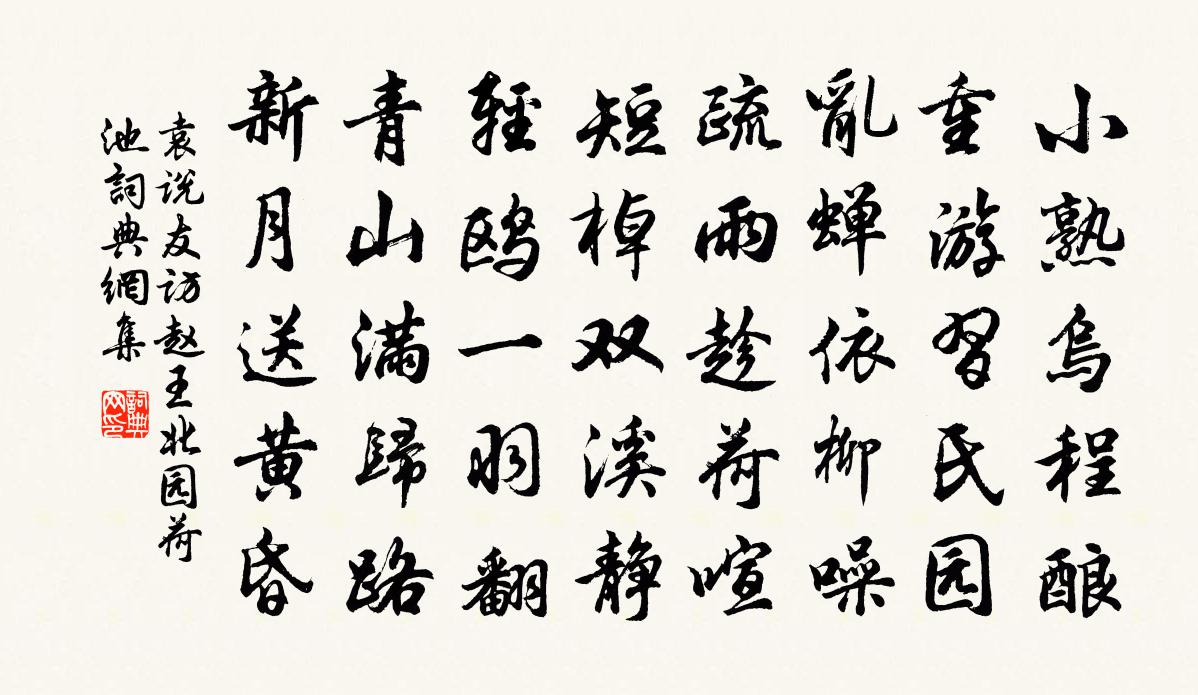 小熟乌程酿
重游習氏园
亂蝉依柳噪
疏雨趁荷喧
短棹双溪静
輕鸥一羽翻
青山满歸路
新月送黄昏
袁说友访赵王北园荷
池詞典網集
詞典
网印